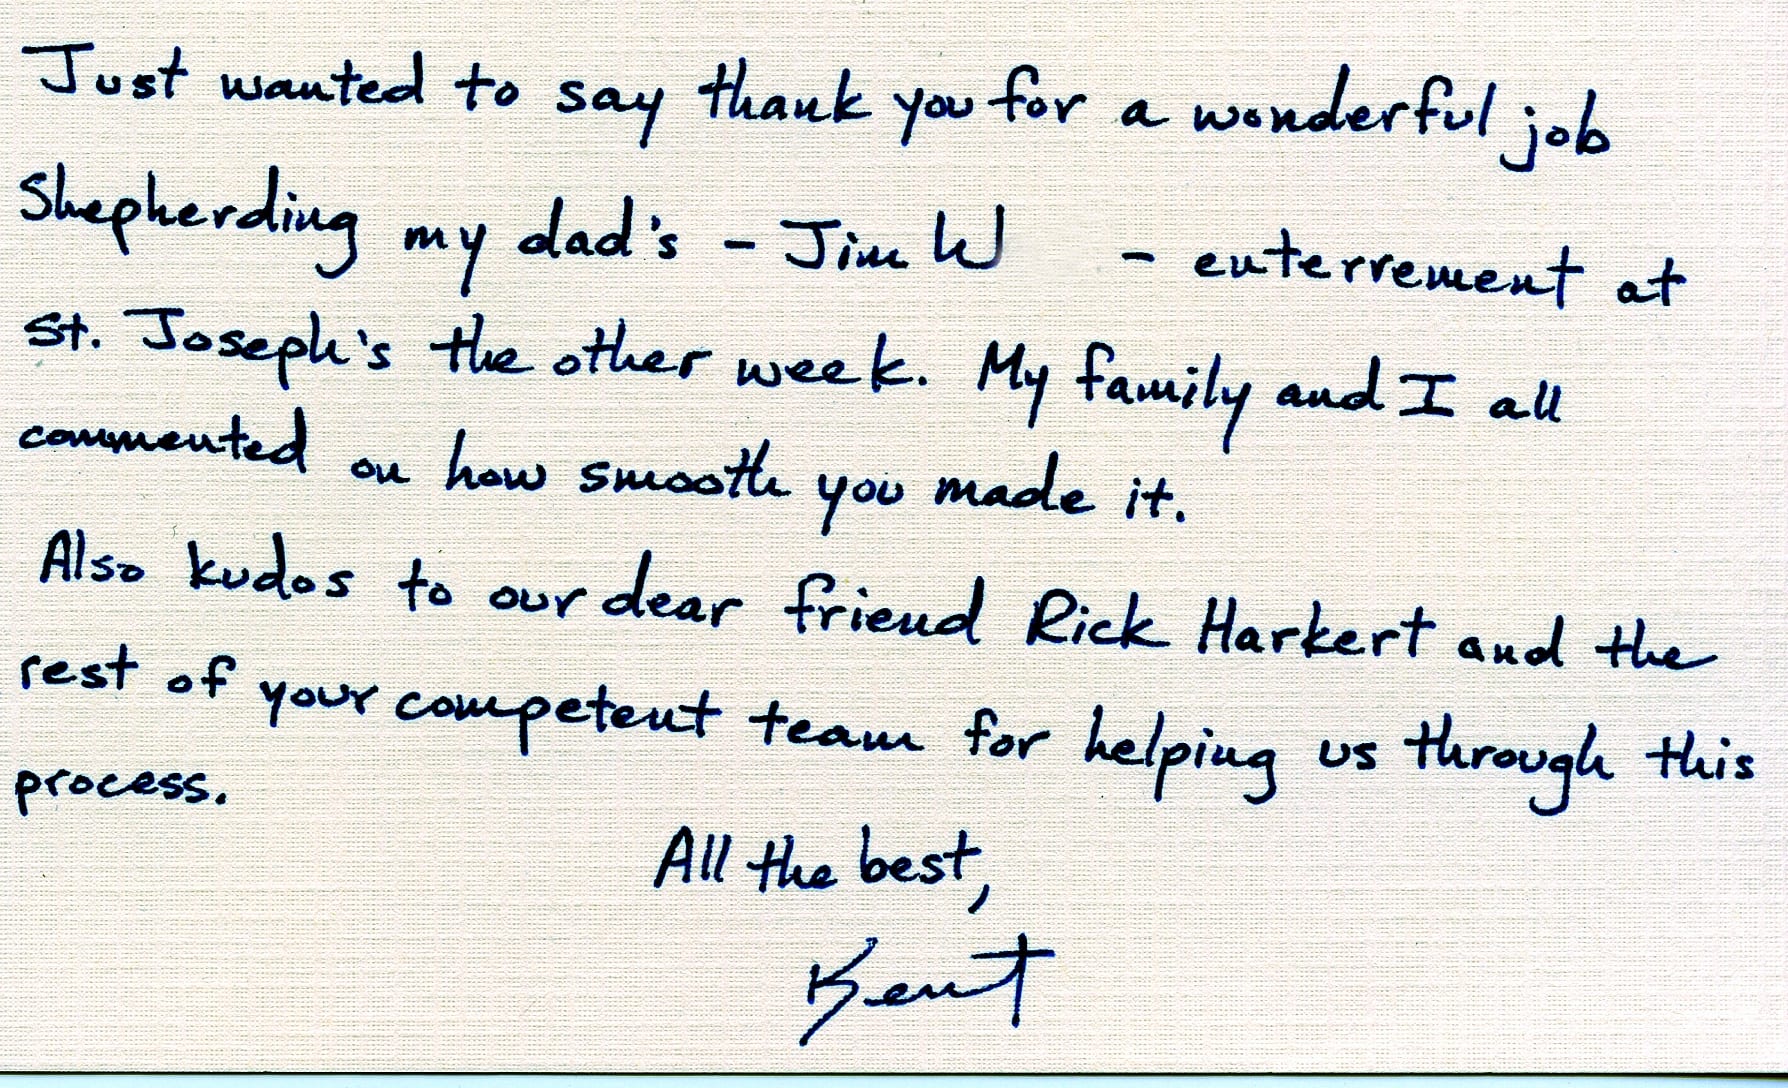 Just wanted to say thank you for a wonderful job
Shepherding my dad's - Jim W - enterrement at
St. Joseph's the other week. My family and I all
commented on how smooth you made it.
Also kudos to our dear friend Rick Harkert and the
rest of your competent team for helping us through this
process.
All the best,
Kent